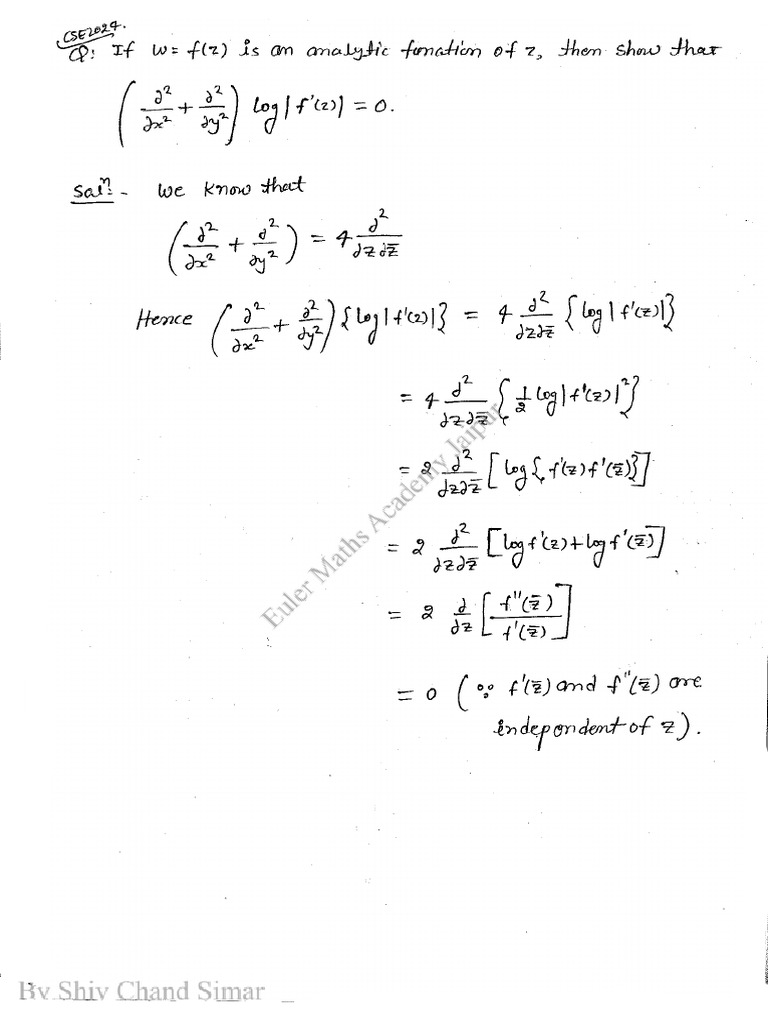 CSE2024.
Q: If w = f(z) is an analytic function of z, then show that
(∂²/∂x² + ∂²/∂y²) log|f'(z)| = 0.
Solⁿ - We know that
(∂²/∂x² + ∂²/∂y²) = 4 ∂²/∂z∂z̄
Hence (∂²/∂x² + ∂²/∂y²){log|f'(z)|} = 4 ∂²/∂z∂z̄ {log|f'(z)|}
= 4 ∂²/∂z∂z̄ {1/2 log|f'(z)|²}
= 2 ∂²/∂z∂z̄ [log{f'(z) f'(z̄)}]
= 2 ∂²/∂z∂z̄ [log f'(z) + log f'(z̄)]
= 2 ∂/∂z [f''(z̄)/f'(z̄)]
= 0 (∵ f'(z̄) and f''(z̄) are
independent of z).
Euler Maths Academy Jaipur
By Shiv Chand Simar